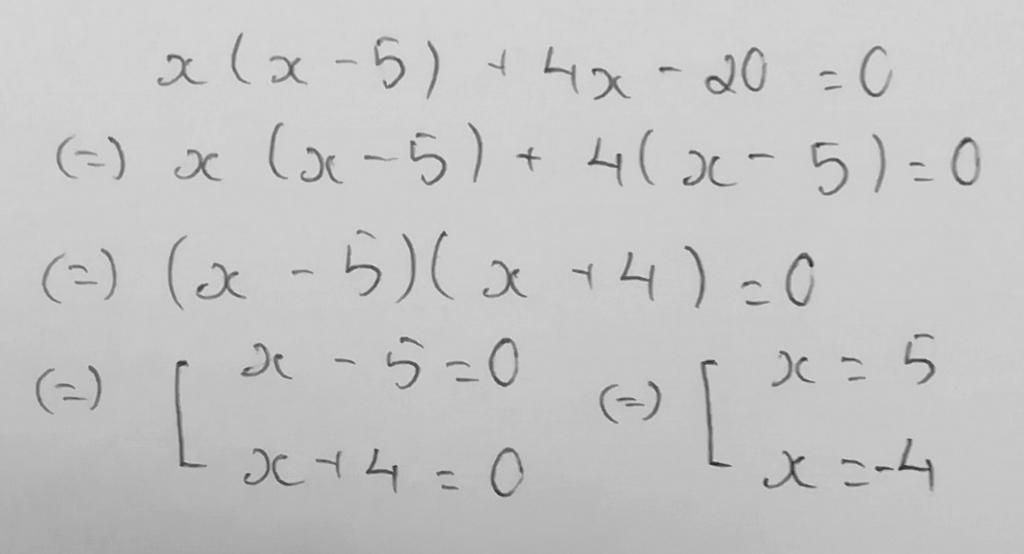 x(x-5) + 4x - 20 = 0
(=) x (x-5) + 4(x-5) = 0
(=) (x-5)(x+4) = 0
(=) [ x-5=0 (=) [ x=5
x+4=0 x=-4